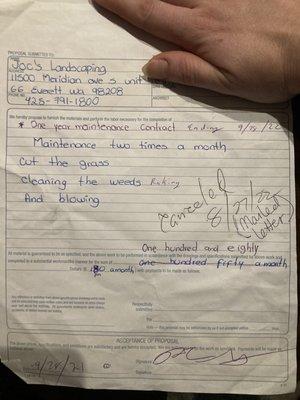 PROPOSAL SUBMITTED TO:
Joc's Landscaping
11500 Meridian ave s unit
66 Everett wa 98208
425-791-1800
We hereby propose to furnish the materials and perform the labor necessary for the completion of
* One year maintenance contract Ending 9/28/22
Maintenance two times a month
Cut the grass
cleaning the weeds Raking
And blowing
Canceled
8/27/22
(Mailed letter)
One hundred and eighty
All material is guaranteed to be as specified, and the above work to be performed in accordance with the drawings and specifications submitted for above work and
completed in a substantial workmanlike manner for the sum of one hundred fifty a month
Dollars ($ 180 a month) with payments to be made as follows:
Respectfully
submitted
Per
Note — this proposal may be withdrawn by us if not accepted within days.
ACCEPTANCE OF PROPOSAL
The above prices, specifications, and conditions are satisfactory and are hereby accepted. You are authorized to do the work as specified. Payments will be made as
Signature
9/28/21
Signature